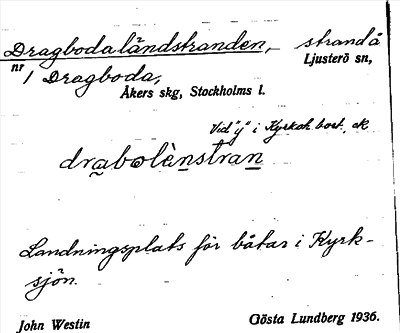 Dragbodaländstranden, strand å
nr 1 Dragboda, Ljusterö sn,
Åkers skg, Stockholms l.
Vid "y" i Kyrkoh. bost., ek
drabolènstran
Landningsplats för båtar i Kyrk-
sjön.
John Westin Gösta Lundberg 1936.